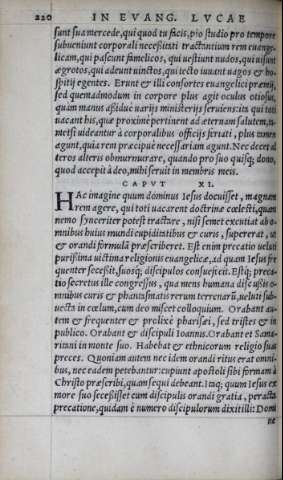 220 IN EVANG. LVCAE
sunt sua mercede, qui quod tu facis, pio studio pro tempore
subueniunt corporali necessitati tractantium rem euange-
licam, qui pascunt famelicos, qui uestiunt nudos, qui uisunt
ægrotos, qui adeunt uinctos, qui tecto iuuant uagos & ho-
spitij egentes. Erunt & illi consortes euangelici præmij,
sed quemadmodum in corpore plus agit oculus ociosus,
quàm manus assiduè uarijs ministerijs seruiens: ita qui toti
uacant his, quæ proximè pertinent ad æternam salutem, ti-
metsi uideantur à corporalibus officijs feriati, plus tamen
agunt, quia rem præcipuè necessariam agunt. Nec decet al-
teros alteris obmurmurare, quando pro suo quisq; dono,
quod accepit à deo, mihi seruit in membris meis.
CAPVT XI.
HAc imagine quum dominus Iesus docuisset, magnam
rem agere, qui toti uacarent doctrinæ cœlesti, quam
nemo synceriter potest tractare, nisi semet excutiat ab o-
mnibus huius mundi cupiditatibus & curis, supererat, ut
& orandi formulã præscriberet. Est enim precatio ueluti
purissima uictima religionis euangelicæ, ad quam Iesus fre
quenter secessit, suosq; discipulos consuefecit. Estq; preca-
tio secretus ille congressus, qua mens humana discussis o-
mnibus curis & phantasmatis rerum terrenarũ, uelut sub-
uecta in cœlum, cum deo miscet colloquium. Orabant au-
tem & frequenter & prolixè pharisæi, sed tristes & in
publico. Orabant & discipuli Ioannis. Orabant et Sama-
ritani in monte suo. Habebat & ethnicorum religio suas
preces. Quoniam autem nec idem orandi ritus erat omni-
bus, nec eadem petebantur: cupiunt apostoli sibi formam à
Christo præscribi, quam sequi debeant. Itaq; quum Iesus ex
more suo secessisset cum discipulis orandi gratia, peracta
precatione, quidam è numero discipulorum dixit illi: Domi
ne